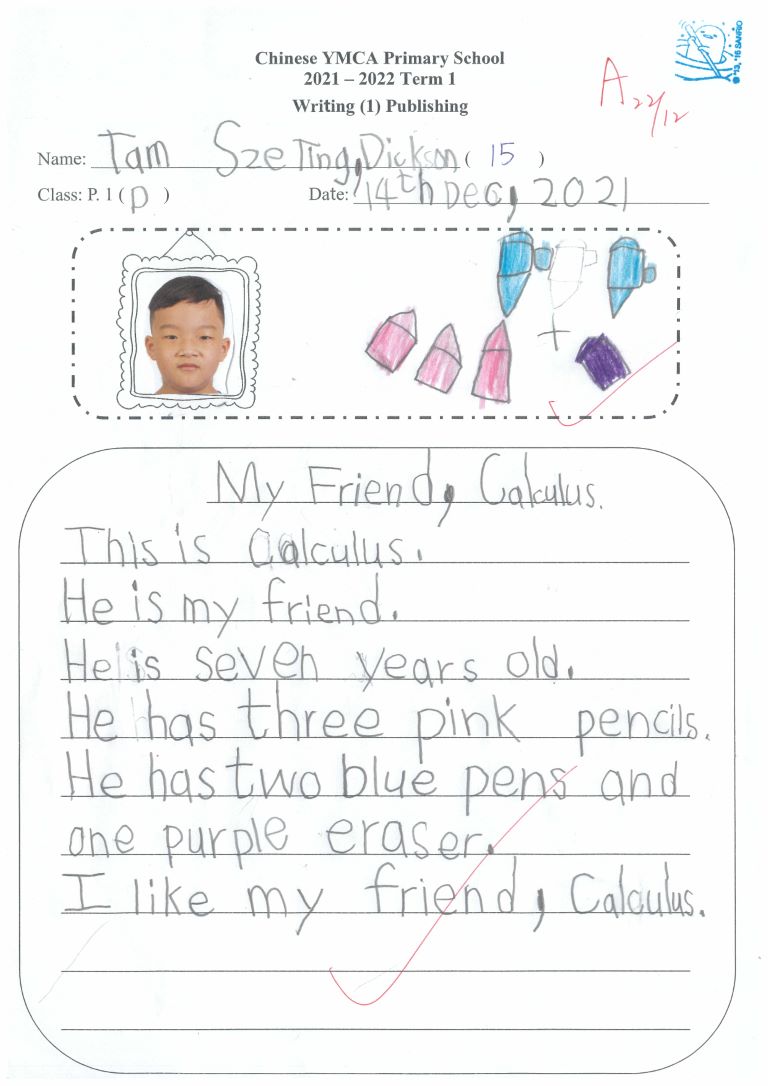 © '13, '16 SANRIO
Chinese YMCA Primary School
2021 – 2022 Term 1
Writing (1) Publishing
A 22/12
Name: Tam Sze Ting, Dickson ( 15 )
Class: P. 1 ( D ) Date: 14th Dec, 2021
+
My Friend, Calculus.
This is Calculus.
He is my friend.
He is seven years old.
He has three pink pencils.
He has two blue pens and
one purple eraser.
I like my friend, Calculus.